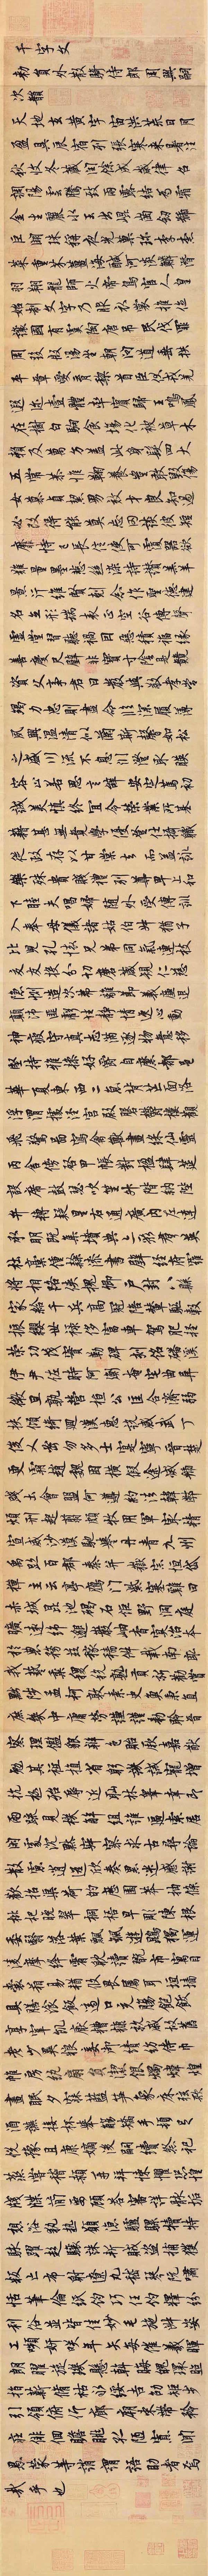 千字文
勅員外散騎侍郎周興嗣
次韻
天地玄黃宇宙洪荒日月
盈昃辰宿列張寒來暑往
秋收冬藏閏餘成歲律呂
調陽雲騰致雨露結為霜
金生麗水玉出崑崗劍號
巨闕珠稱夜光菓珍李柰
菜重芥薑海鹹河淡鱗潛
羽翔龍師火帝鳥官人皇
始制文字乃服衣裳推位
讓國有虞陶唐弔民伐罪
周發殷湯坐朝問道垂拱
平章愛育黎首臣伏戎羌
遐邇壹體率賓歸王鳴鳳
在樹白駒食場化被草木
賴及萬方蓋此身髮四大
五常恭惟鞠養豈敢毀傷
女慕貞絜男效才良知過
必改得能莫忘罔談彼短
靡恃己長信使可覆器欲
難量墨悲絲染詩讚羔羊
景行維賢剋念作聖德建
名立形端表正空谷傳聲
虛堂習聽禍因惡積福緣
善慶尺璧非寶寸陰是競
資父事君曰嚴與敬孝當
竭力忠則盡命臨深履薄
夙興溫凊似蘭斯馨如松
之盛川流不息淵澄取映
容止若思言辭安定篤初
誠美慎終宜令榮業所基
籍甚無竟學優登仕攝職
從政存以甘棠去而益詠
樂殊貴賤禮別尊卑上和
下睦夫唱婦隨外受傅訓
入奉母儀諸姑伯叔猶子
比兒孔懷兄弟同氣連枝
交友投分切磨箴規仁慈
隱惻造次弗離節義廉退
顛沛匪虧性靜情逸心動
神疲守真志滿逐物意移
堅持雅操好爵自縻都邑
華夏東西二京背芒面洛
浮渭據涇宮殿磐鬱樓觀
飛驚圖寫禽獸畫綵仙靈
丙舍傍啟甲帳對楹肆筵
設席鼓瑟吹笙升階納陛
弁轉疑星右通廣內左達
承明既集墳典亦聚群英
杜稾鍾隸漆書壁經府羅
將相路俠槐卿戶封八縣
家給千兵高冠陪輦驅轂
振纓世祿侈富車駕肥輕
策功茂實勒碑刻銘磻溪
伊尹佐時阿衡奄宅曲阜
微旦孰營桓公匡合濟弱
扶傾綺迴漢惠說感武丁
俊乂密勿多士寔寧晉楚
更霸趙魏困橫假途滅虢
踐土會盟何遵約法韓弊
煩刑起翦頗牧用軍最精
宣威沙漠馳譽丹青九州
禹跡百郡秦并嶽宗恒岱
禪主云亭鴈門紫塞雞田
赤城昆池碣石鉅野洞庭
曠遠綿邈巖岫杳冥治本
於農務茲稼穡俶載南畝
我藝黍稷稅熟貢新勸賞
黜陟孟軻敦素史魚秉直
庶幾中庸勞謙謹勑聆音
察理鑒貌辯色貽厥嘉猷
勉其祗植省躬譏誡寵增
抗極殆辱近恥林皋幸即
兩疏見機解組誰逼索居
閑處沉默寂寥求古尋論
散慮逍遙欣奏累遣慼謝
歡招渠荷的歷園莽抽條
枇杷晚翠梧桐早凋陳根
委翳落葉飄颻遊鵾獨運
凌摩絳霄耽讀翫市寓目
囊箱易輶攸畏屬耳垣牆
具膳飡飯適口充腸飽飫
享宰飢厭糟糠親戚故舊
老少異糧妾御績紡侍巾
帷房紈扇圓潔銀燭煒煌
晝眠夕寐藍筍象床弦歌
酒讌接杯舉觴矯手頓足
悅豫且康嫡後嗣續祭祀
蒸嘗稽顙再拜悚懼恐惶
牋牒簡要顧答審詳骸垢
想浴執熱願涼驢騾犢特
駭躍超驤誅斬賊盜捕獲
叛亡布射遼丸嵇琴阮嘯
恬筆倫紙鈞巧任釣釋紛
利俗並皆佳妙毛施淑姿
工嚬妍笑年矢每催羲暉
朗曜旋璣懸斡晦魄環照
指薪脩祜永綏吉劭矩步
引領俯仰廊廟束帶矜
莊徘徊瞻眺孤陋寡聞
愚蒙等誚謂語助者焉
哉乎也